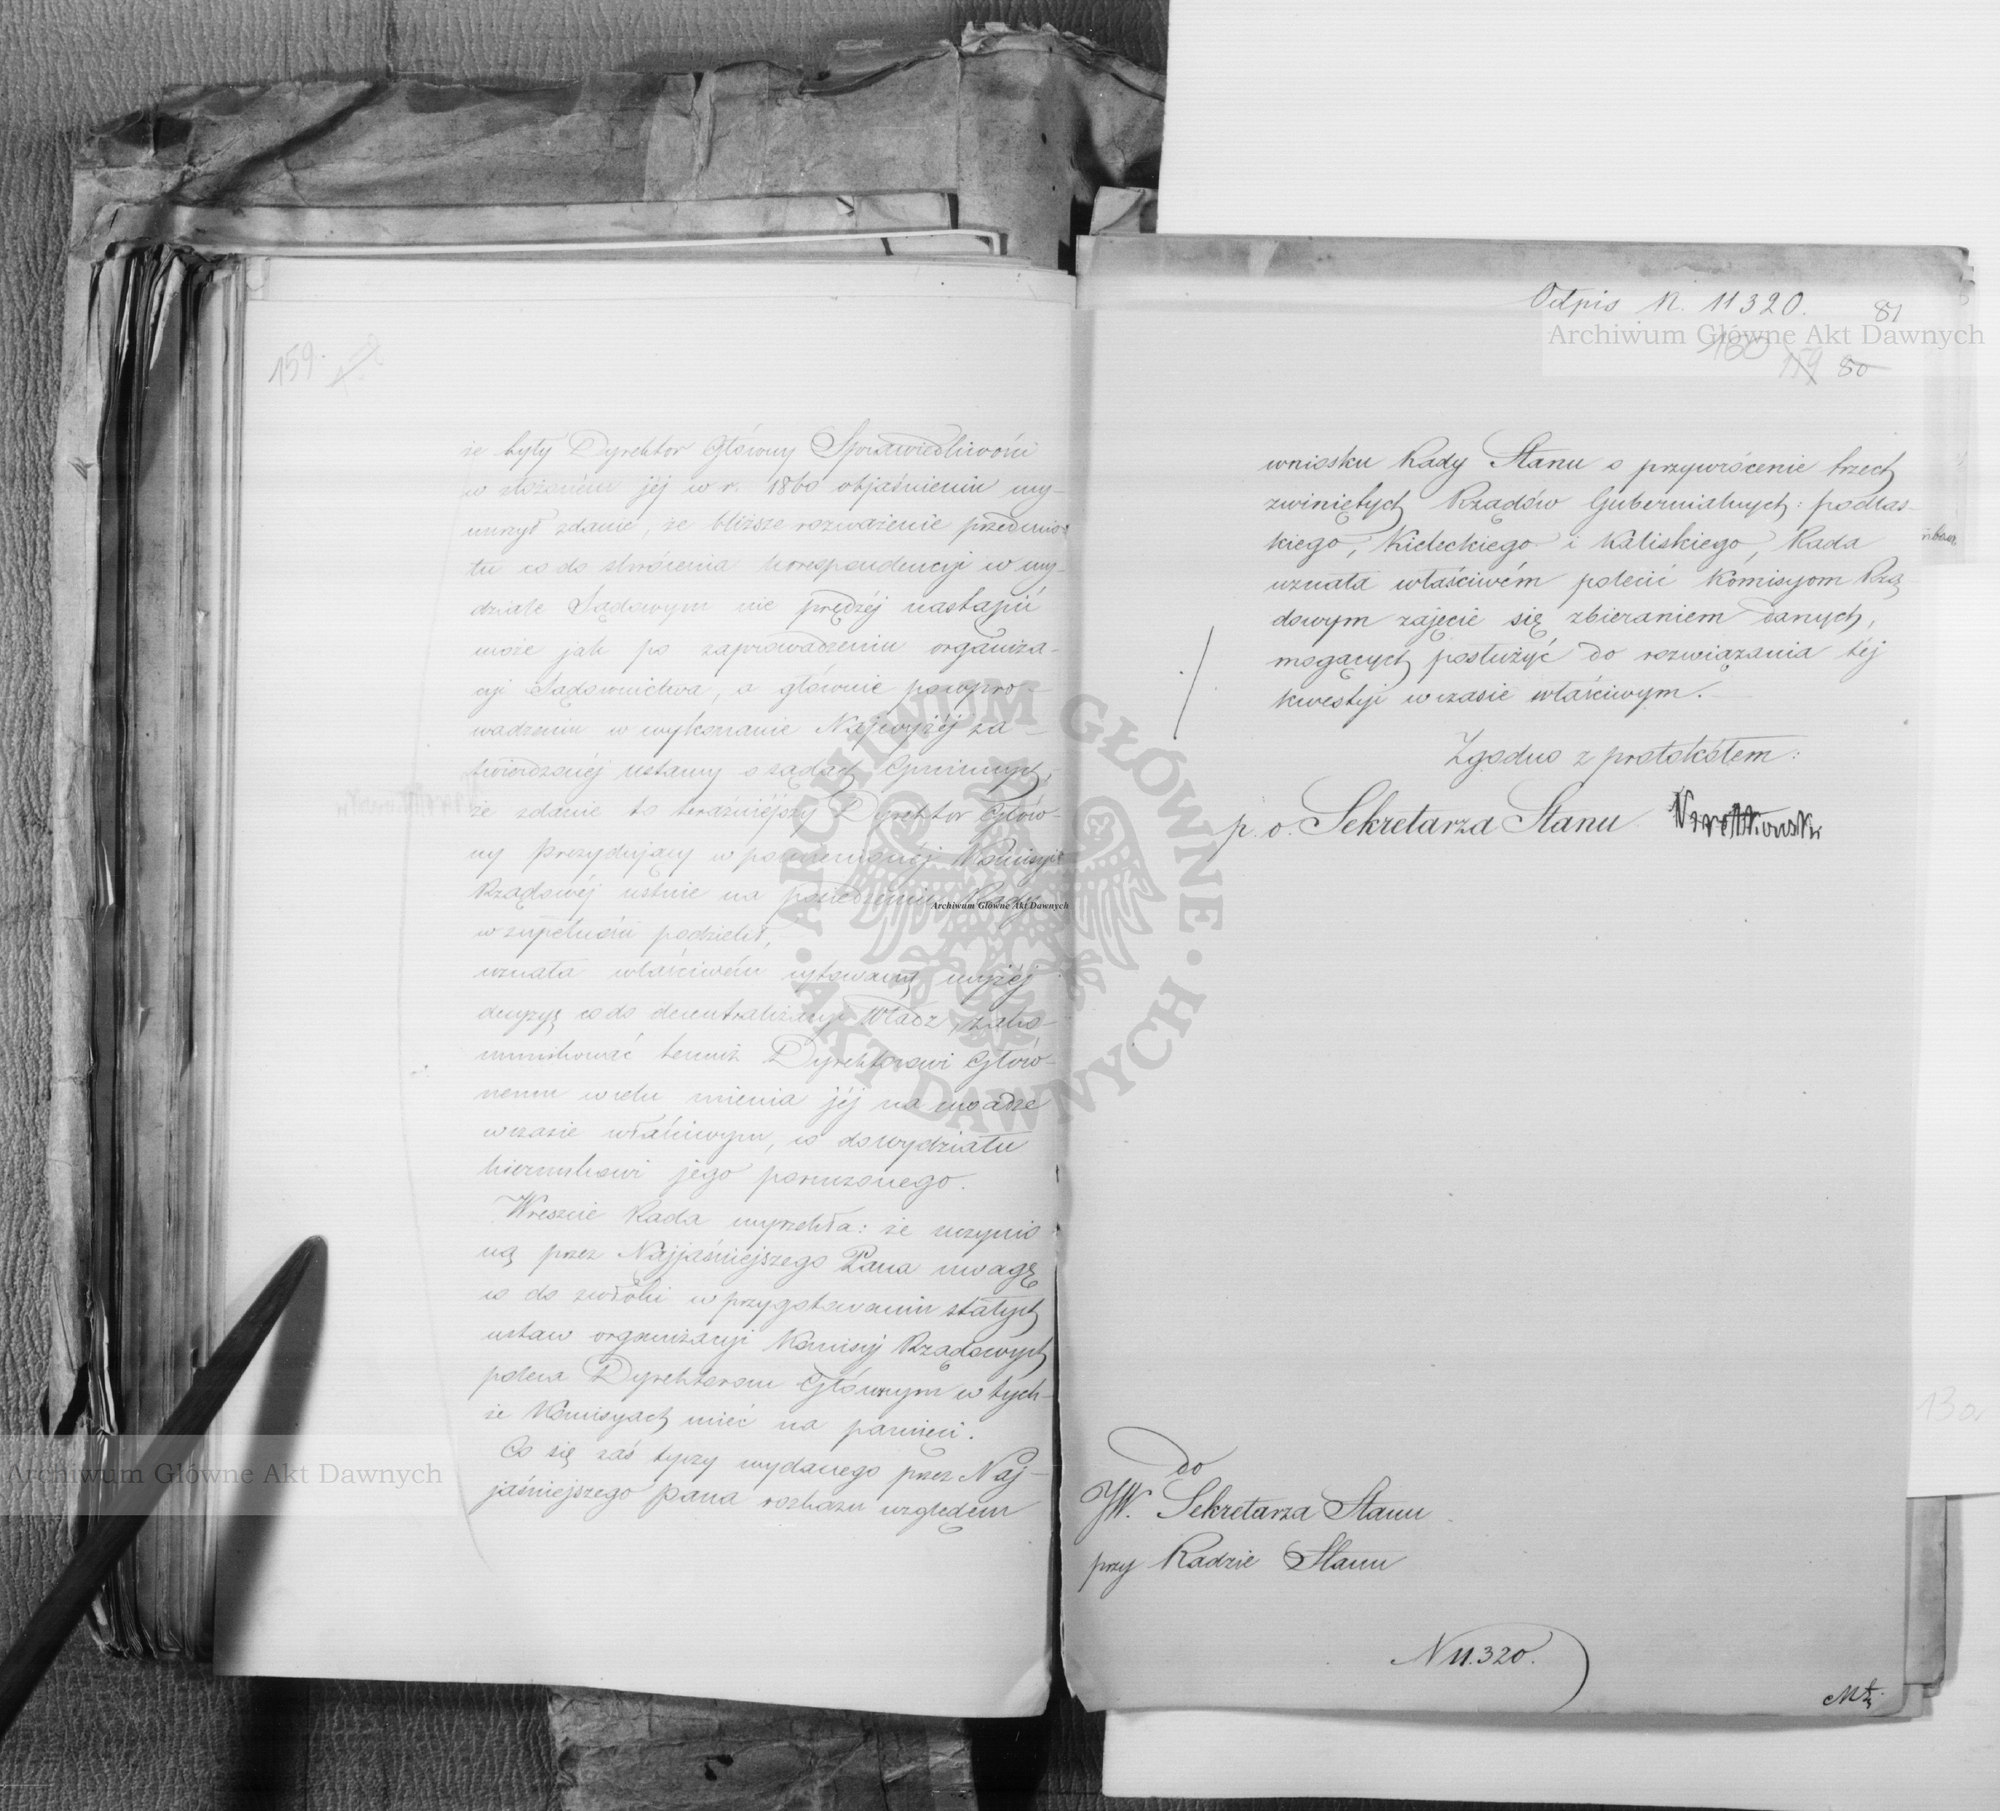 159.
że były Dyrektor Główny Sprawiedliwości
w złożoném jéj w r. 1860 objaśnieniu wy-
nurzył zdanie, że bliższe rozważenie przedmio-
tu co do skrócenia korespondencyi w wy-
dziale Sądowym nie prędzéj nastąpić
może jak po zaprowadzeniu organiza-
cyi Sądownictwa, a głównie po wpro-
wadzeniu w wykonanie Najwyżéj za-
twierdzonéj ustawy o sądach Gminnych,
że zdanie to teraźniéjszy Dyrektor Głów-
ny Prezydujący w pomienionéj Komisyi
Rządowéj ustnie na posiedzeniu Rady
w zupełności podzielił,
uznała właściwém cytowaną wyżéj
decyzyę co do decentralizacyi Władz, zako-
munikować temuż Dyrektorowi Głów-
nemu w celu mienia jéj na uwadze
w czasie właściwym, co do wydziału
kierunkowi jego poruczonego.
Wreszcie Rada wyrzekła: że uczynio-
ną przez Najjaśniejszego Pana uwagę
co do zwłoki w przygotowaniu stałych
ustaw organizacyi Komisyj Rządowych
poleca Dyrektorom Głównym w tych-
że Komisyach mieć na pamięci.
Co się zaś tyczy wydanego przez Naj-
jaśniejszego Pana rozkazu względem
Odpis N. 11320.
81
160
159 80
wniosku Rady Stanu o przywrócenie trzech
zwiniętych Rządów Gubernialnych: podlas-
kiego, Kieleckiego i Kaliskiego, Rada
uznała właściwém polecić Kómisyom Rzą
dowym zajęcie się zbieraniem danych,
mogących posłużyć do rozwiązania téj
kwestyi w czasie właściwym.
Zgodno z protokółem:
p. o. Sekretarza Stanu
do
JW. Sekretarza Stanu
przy Radzie Stanu
N 11.320.
130
Archiwum Główne Akt Dawnych
Archiwum Główne Akt Dawnych
Archiwum Główne Akt Dawnych
ARCHIWUM GŁÓWNE AKT DAWNYCH